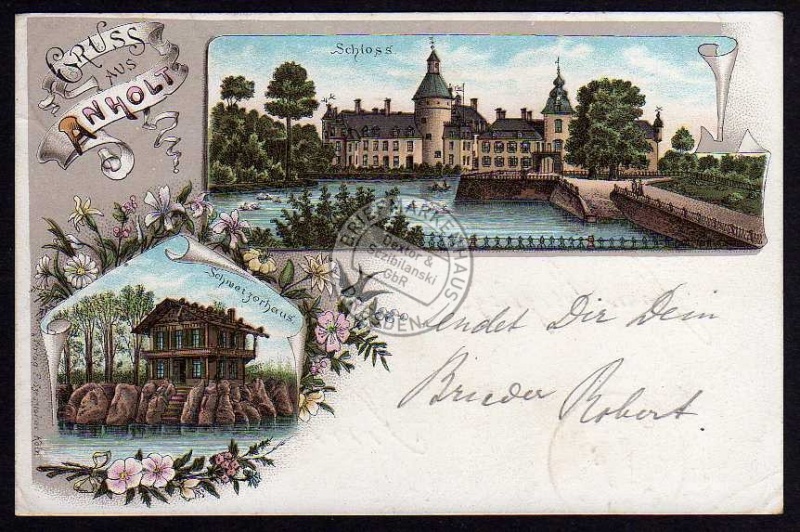 GRUSS
AUS
ANHOLT
Schloss
Schweizerhaus
BRIEFMARKENHAUS
Dektor &
Szibilanski
GbR
DRESDEN
sendet Dir Dein
Brieder Robert.